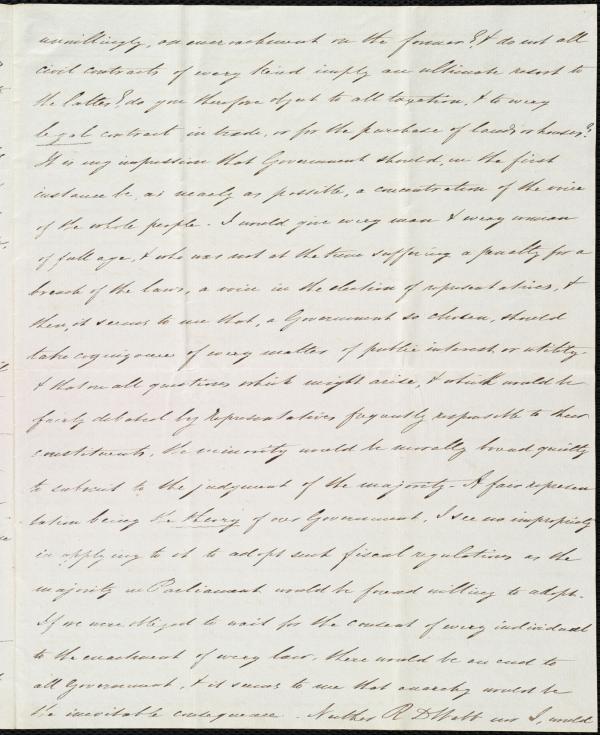 unwillingly, an encroachment on the former?, & do not all
civil contracts of every kind imply an ultimate resort to
the latter? do you therefore object to all taxation, & to every
legal contract in trade, or for the purchase of lands or houses?
It is my impression that Government should, in the first
instance be, as nearly as possible, a concentration of the voice
of the whole people. I would give every man & every woman
of full age, & who was not at the time suffering a penalty for a
breach of the laws, a voice in the election of representatives, &
then, it seems to me that, a Government so chosen, should
take cognizance of every matter of public interest or utility.
& that on all questions which might arise, & which would be
fairly debated by representatives frequently responsible to their
constituents, the minority would be morally bound quietly
to submit to the judgment of the majority. A fair represen
tation being the theory of our Government, I see no impropriety
in applying to it to adopt such fiscal regulations as the
majority in Parliament would be found willing to adopt.
If we were obliged to wait for the consent of every individual
to the enactment of every law, there would be an end to
all Government, & it seems to me that anarchy would be
the inevitable consequence. Neither R D Webb nor I, would